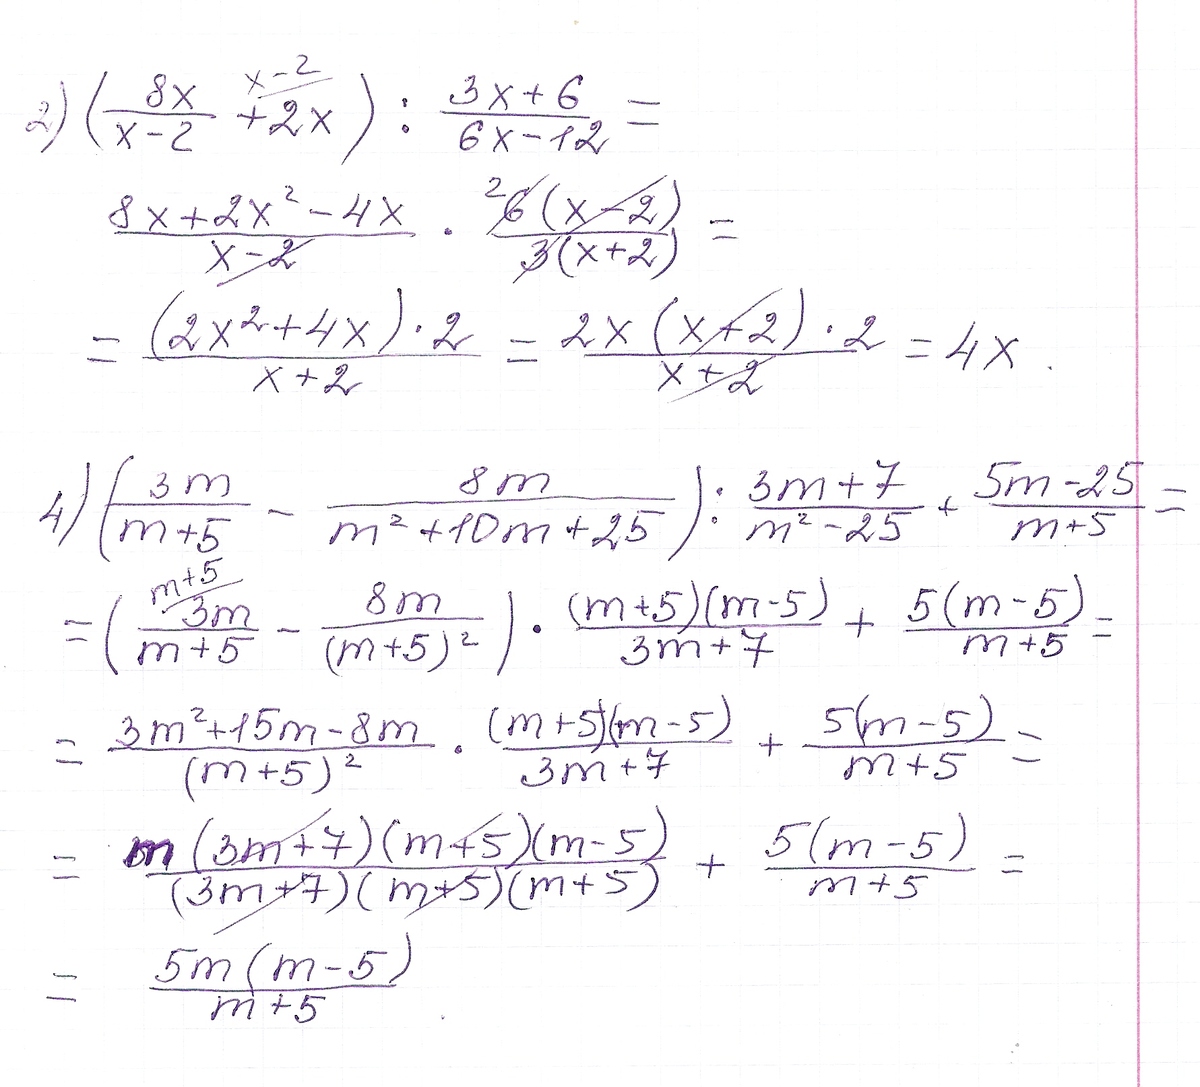 2) (8x/(x-2) + 2x^(x-2)) : (3x+6)/(6x-12) =
(8x+2x²-4x)/(x-2) · ²6(x-2)/(3(x+2)) =
= ((2x²+4x)·2)/(x+2) = (2x(x+2)·2)/(x+2) = 4x.
4) (3m/(m+5) - 8m/(m²+10m+25)) : (3m+7)/(m²-25) + (5m-25)/(m+5) =
= (^(m+5) 3m/(m+5) - 8m/(m+5)²) · ((m+5)(m-5))/(3m+7) + (5(m-5))/(m+5) =
= (3m²+15m-8m)/(m+5)² · ((m+5)(m-5))/(3m+7) + (5(m-5))/(m+5) =
= (m(3m+7)(m+5)(m-5))/((3m+7)(m+5)(m+5)) + (5(m-5))/(m+5) =
= (5m(m-5))/(m+5)